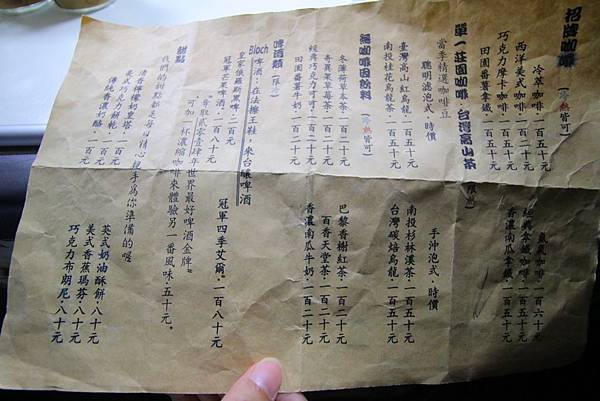 招牌咖啡（冷熱皆可）
冷萃咖啡‧一百五十元
西洋美式咖啡‧一百元
巧克力摩卡咖啡‧一百五十元
田園番薯拿鐵‧一百五十元
氮氣咖啡‧一百六十元
經典拿鐵咖啡‧一百五十元
香濃南瓜拿鐵‧一百五十元
單一莊園咖啡‧台灣高山茶
當季精選咖啡豆
聰明濾泡式‧時價
手沖泡式‧時價
臺灣高山紅烏龍‧一百五十元
南投桂花烏龍‧一百五十元
南投杉林溪茶‧一百五十元
台灣碳焙烏龍‧一百五十元
無咖啡因飲料（冷熱皆可）
冬薄荷草本茶‧一百二十元
奇異果草莓茶‧一百二十元
經典巧克力可可‧一百五十元
田園番薯牛奶‧一百二十元
巴黎香榭紅茶‧一百二十元
百香天堂茶‧一百二十元
香濃南瓜牛奶‧一百二十元
啤酒類（限冷）
Bloch啤酒‧在法擦王鞋‧來台釀啤酒
皇家俄羅斯黑啤‧二百元
冠軍芒果啤酒‧一百八十元
冠軍四季艾爾‧一百八十元
等取貳零壹肆年世界最好啤酒金牌
可加一杯濃縮咖啡來體驗另一番風味‧五十元。
甜點
我們的甜點都是每日精心親手為你準備的喔
清新檸檬奶皇塔‧一百元
美式巧克力餅乾‧一百元
傳統香濃奶酪‧一百元
英式奶油酥餅‧八十元
美式香蕉瑪芬‧八十元
巧克力布朗尼‧八十元